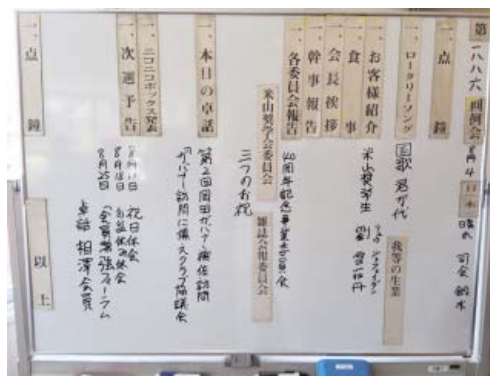 第一八八六回例会 8月4日 晴れ 司会 鈴木
一、点鐘
一、ロータリーソング 国歌 君が代 我等の生業
一、お客様紹介 米山奨学生 劉
一、食事
一、会長挨拶
一、幹事報告
一、各委員会報告 40周年記念事業委員会
米山奨学会委員会 雑誌会報委員会
三つのお祝
一、本日の卓話 第2回岡田ガバナー補佐訪問
「ガバナー訪問に備えクラブ協議会
ニコニコボックス発表
一、次週予告 8月11日 祝日休会
8月18日 お盆休み休会
8月25日 「会員増強フォーラム
卓話 相澤会員
一、点鐘 以上